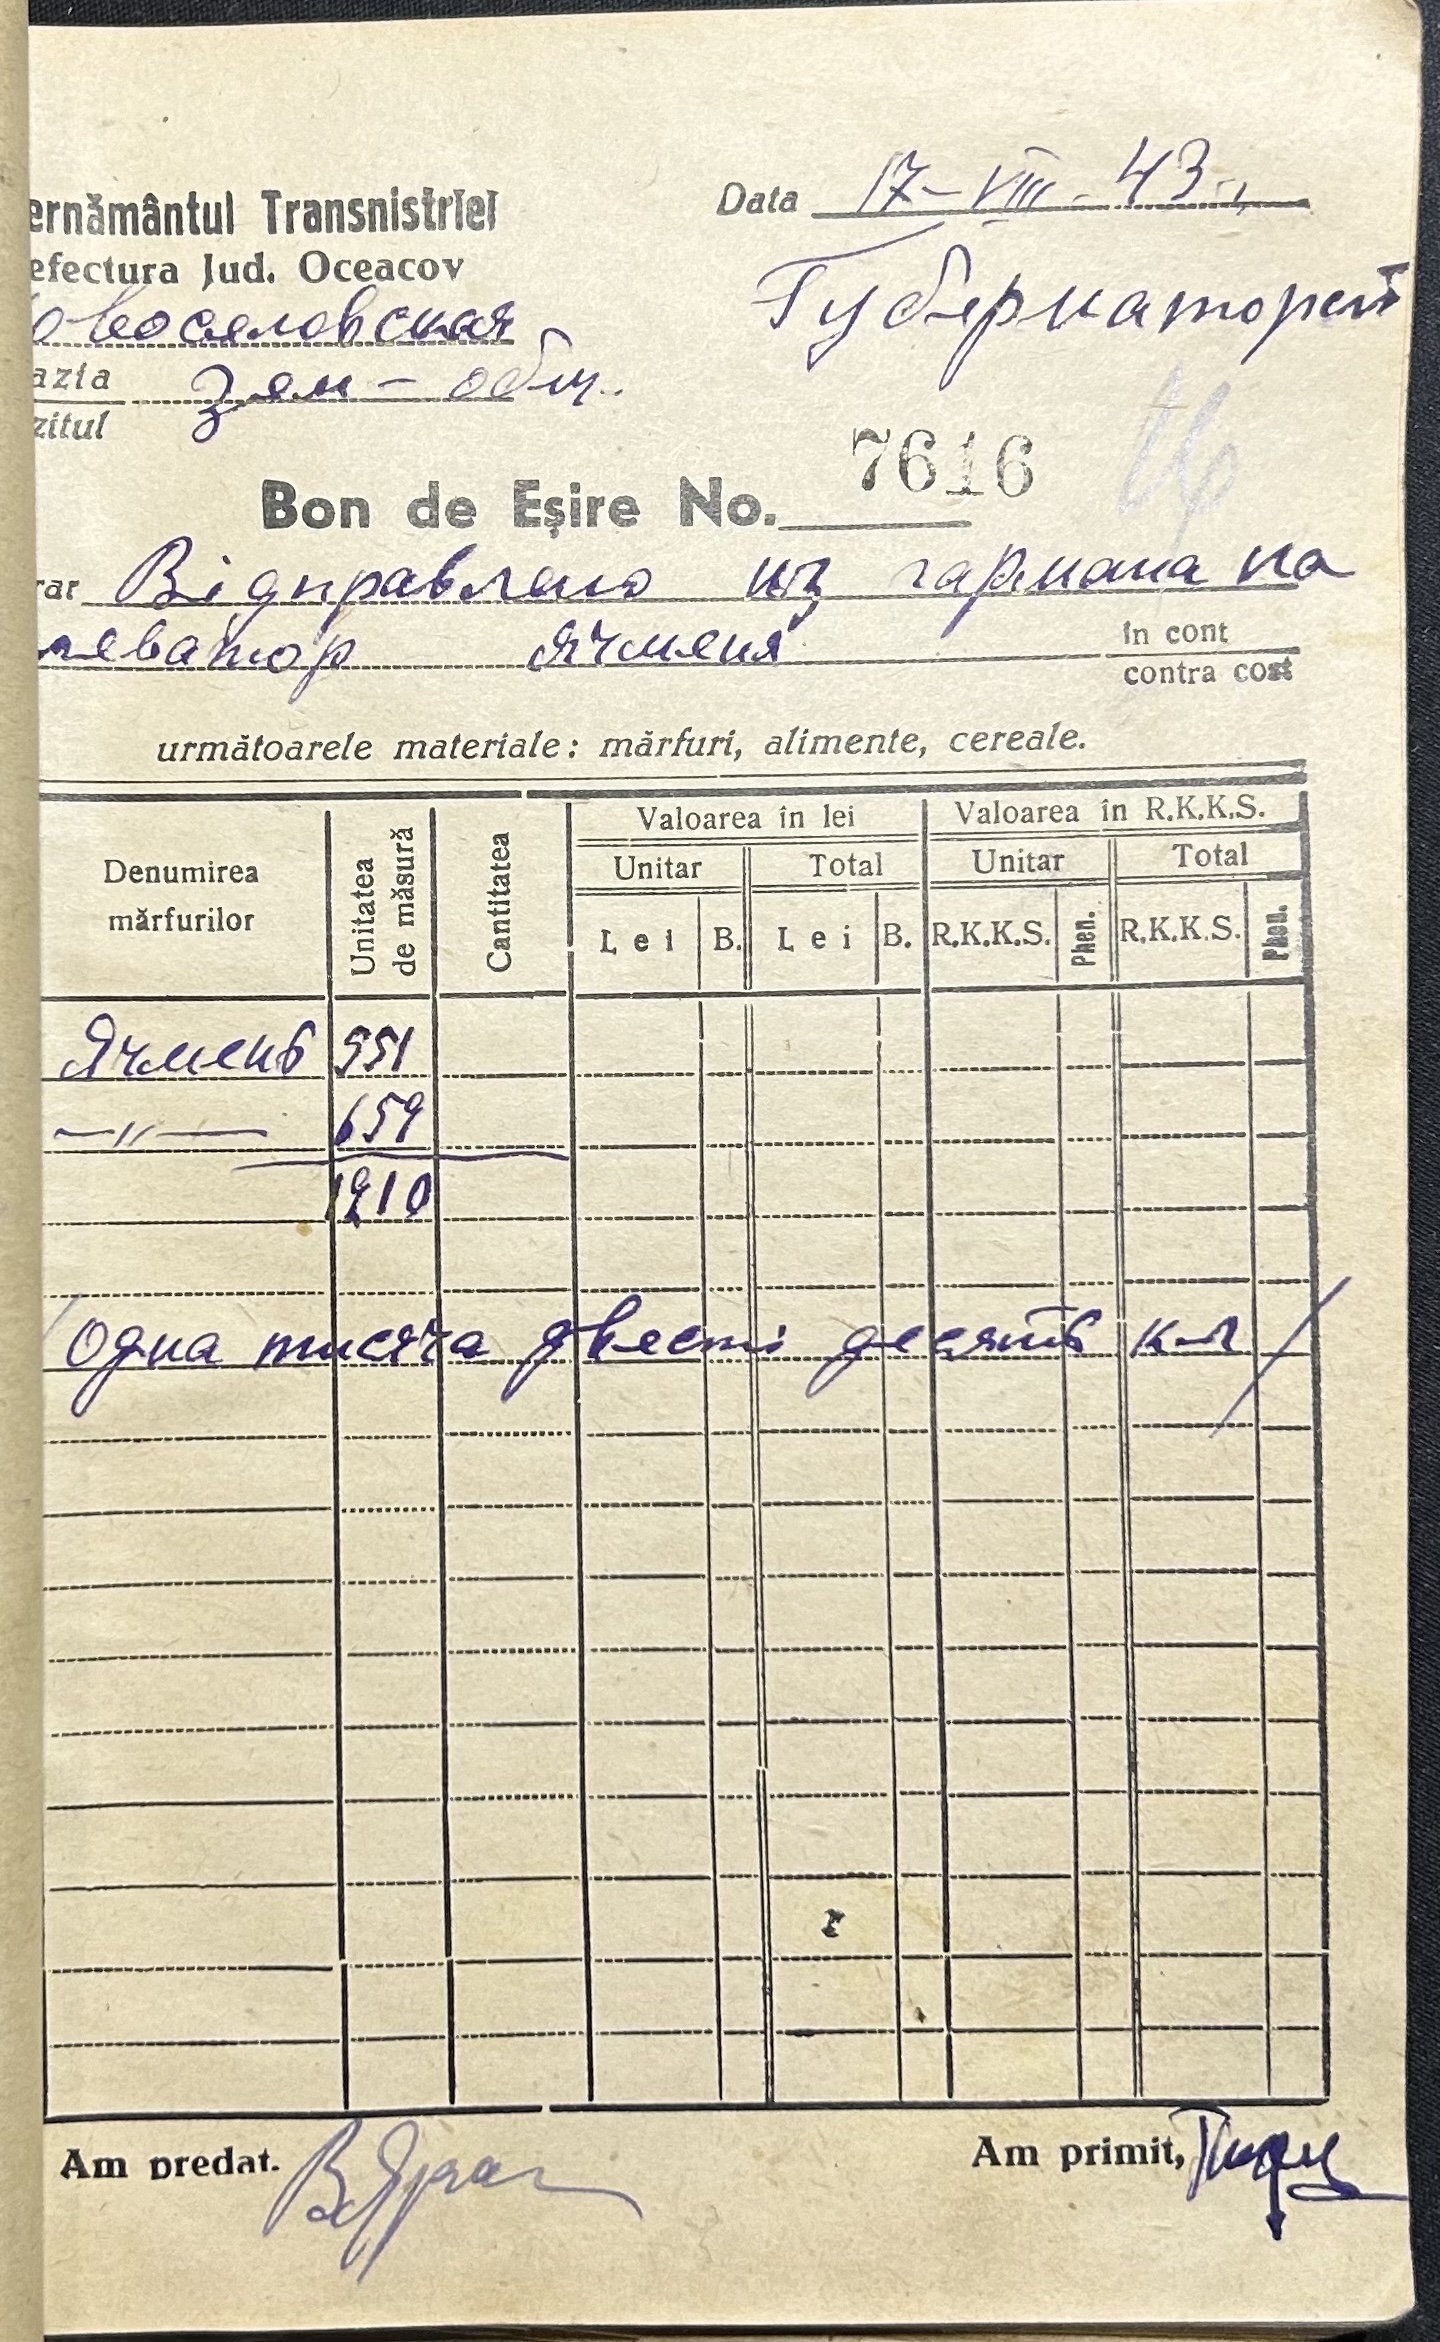 ernământul Transnistriei
efectura Jud. Oceacov
овоселовская
azia зем - общ.
zitul
Data 17-VIII-43 г.
Губернаторст
Bon de Eşire No. 7616
16
rar Відправлено из гармана на
леватор ячменя
în cont
contra cost
următoarele materiale: mărfuri, alimente, cereale.
Denumirea mărfurilor Unitatea de măsură Cantitatea Valoarea în lei Valoarea în R.K.K.S.
Unitar Total Unitar Total
Lei B. Lei B. R.K.K.S. Phen. R.K.K.S. Phen.
Ячмень 551
—„— 659
1210
Одна тисяча двесті десять кл
Am predat.
Am primit,